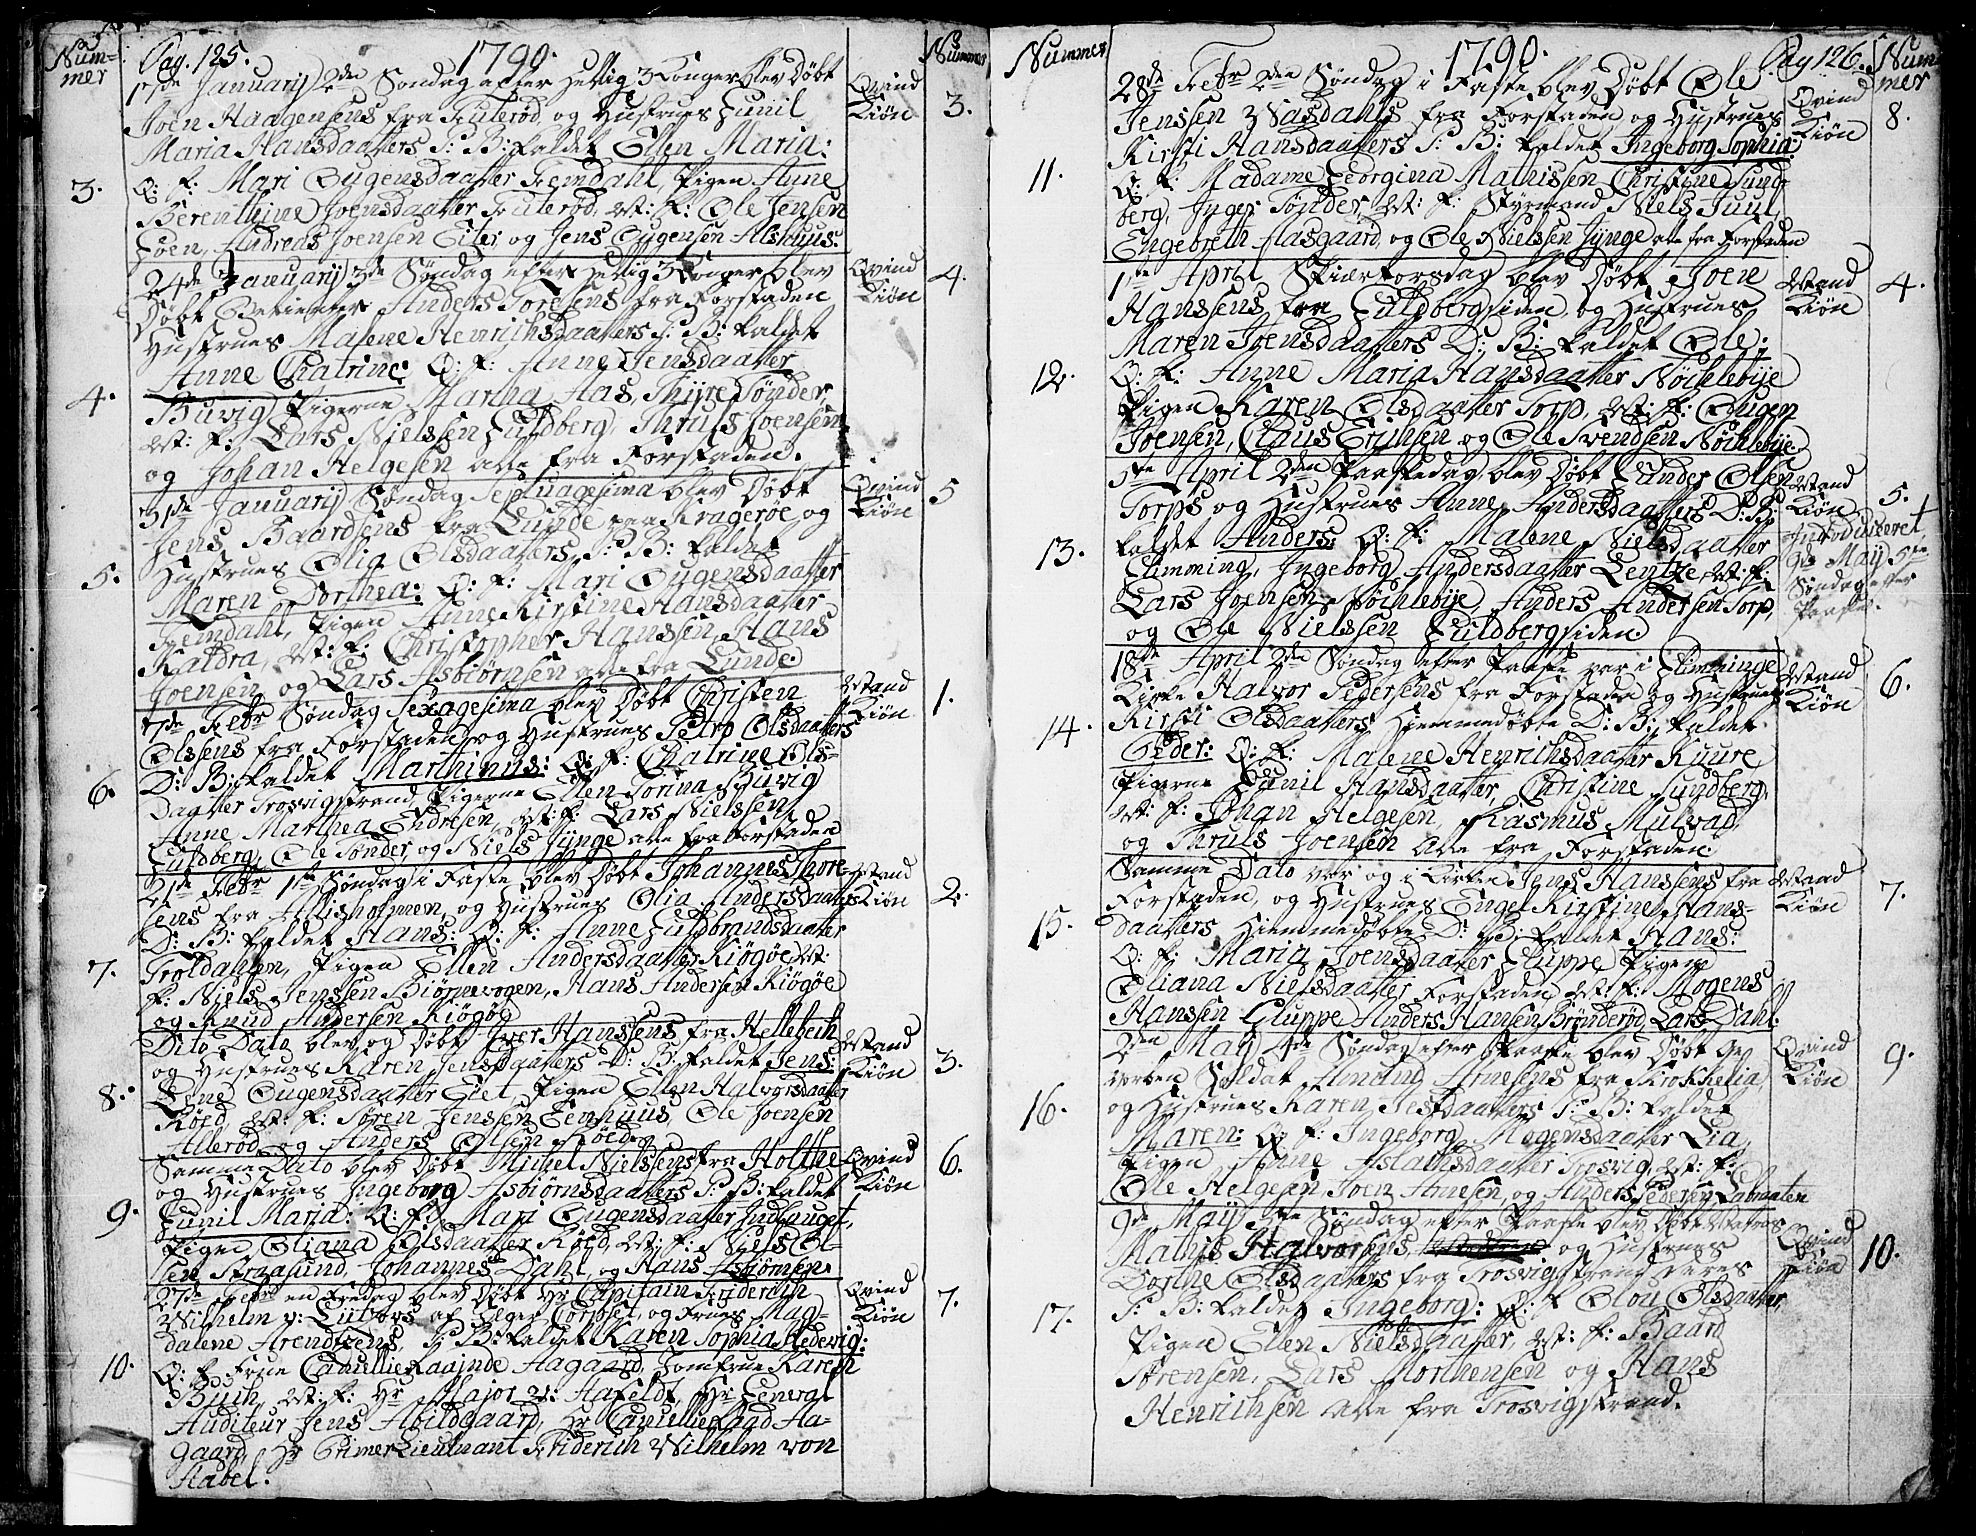 Num-
mer
Pag. 125.
1790.
Nummer
17de Januarij 2den Søndag efter Hellig 3 Konger blev Døbt
Joen Haagensens fra Futerød, og Hustrues Gunil
Maria Hansdaatters P: B: kaldet Ellen Maria:
Q: F: Mari Ougensdaatter Femdahl, Pigen Anne
Berenthine Joensdaatter Futerød, M: F: Ole Jensen
Joensen og Jens Ougensen
Qvind
Kiøn
3.
3.
24de Januarij 3de Søndag efter Hellig 3 Konger blev
Døbt Anders Toresens fra Forstaden
Hustrues Malene Henrichsdaatters P: B: kaldet
Anne Chatrine: Q: F: Anne Jensdaatter
Buvig, Pigerne Martha Aas, Thyre Tønder,
M: F: Lars Nielssen Guldberg, Thruls Joensen
og Johan Helgesen alle fra Forstaden.
Qvind
Kiøn
4.
4.
31de Januarij Søndag Septuagesima blev Døbt
Jens Baardsens fra Lunde paa Kragerøe og
Hustrues Olia Olsdaatters P: B: kaldet
Maren Dorthea: Q: F: Mari Ougensdaatter
Femdahl, Pigen Anne Kirstine Hansdaatter
Kaldra, M: F: Christopher Hanssen, Hans
Joensen og Lars Asbiørnsen alle fra Lunde.
Qvind
Kiøn
5
5.
7de Febr Søndag Sexagesima blev Døbt Christen
Olsens fra Forstaden og Hustrues Petro Olsdaatters
D: B: kaldet Marthinus: Q: F: Chatrine Ols-
Daatter Trosvigstrand, Pigerne Ellen Torina Buvig
Anne Marthea Endresen, M: F: Lars Nielssen
Guldberg, Ole Tønder og Niels Jynge alle fra Forstaden
Mand
Kiøn
1.
6.
21de Febr 1ste Søndag i Faste blev Døbt Johannes Thore-
sens fra Alsholmen, og Hustrues Olia Andersdaatters
D: B: kaldet Hans: Q: F: Anne Guldbrandsdaatter
Troldahlen, Pigen Ellen Andersdaatter Kiøgøe, M:
F: Niels Jenssen Biørnevogen, Hans Andersen Kiøgøe
og Knud Andersen Kiøgøe
Mand
Kiøn
2.
7.
Dito Dato blev og Døbt Iver Hanssens fra Hellebech
og Hustrues Karen Jensdaatters D: B: kaldet Jens:
Lene Ougensdaatter Elet, Pigen Ellen Halvorsdaatter
Røed, M: F: Søren Jenssen Eenhuus, Ole Joensen
Allerød og Anders Olsen Røed
Mand
Kiøn
3.
8.
Samme Dato blev Døbt Michel Nielssens fra Holthe
og Hustrues Ingeborg Asbiørnsdaatters P: B: kaldet
Gunil Maria: Q: F: Mari Ougensdaatter Indlauget,
Pigen Oliana Olsdaatter Røed, M: F: Niels Ol-
sen Straasund, Johannes Dahl, og Hans Asbiørnsen
Qvind
Kiøn
6.
9.
27de Febr en Fredag blev Døbt Hr Capitain Friderich
Wilhelm v: Lützows af Jæger Corpset, og Frues Mag-
dalene Arendtzens, P: B: kaldet Karen Sophia Hedevig:
Q: F: Frue Camillie Kaajnde Aagaard, Jomfrue Karen
Buch, M: F: Hr Major v: Hafeldt, Hr General
Auditeur Jens Abildgaard, Hr Aa-
gaard, Hr Primer Lieutnant Friderich Wilhelm von
Stabel.
Qvind
Kiøn
7.
10.
Nummer
1790.
Pag 126.
Num
mer
28de Febr 2den Søndag i Faste blev Døbt Ole
Jenssen Wasdahls fra Forstaden og Hustrues
Kirsti Hansdaatters P: B: kaldet Ingeborg Sophia:
Q: F: Madame Georgina Mathissen, Christine Sund-
berg, Inger Tønder, M: F: Styrmand Niels Juul,
Engebreth Aasgaard, og Ole Nielssen Jynge alle fra Forstaden
Qvind
Kiøn
8.
11.
1ste April Skiærtorsdag blev Døbt Joen
Hanssens fra Guldbergsiden, og Hustrues
Maren Joensdaatters D: B: kaldet Ole:
Q: F: Anne Maria Hansdaatter Nøchlebye
Pigen Karen Olsdaatter Torp, M: F: Ougen
Joensen, Claus Erichsen og Ole Svendsen Nøchlebye.
Mand
Kiøn
4.
12.
5te April 2den Paaskedag blev Døbt Gunder Olsen
Torps og Hustrues Anne Andersdaatters D: B:
kaldet Anders: Q: F: Malene Nielsdaatter
Glimming, Ingeborg Andersdaatter Lentze, M: F:
Lars Joensen Nøchlebye, Anders Andersen Torp,
og Ole Nielssen Guldbergsiden.
Mand
Kiøn
Introduceret
9de Maij 5te
Søndag efter
Paaske.
5. †
13.
18de April 2den Søndag efter Paaske var i Glimminge
Kirke Halvor Pedersens fra Forstaden og Hustrues
Kirsti Olsdaatters Hiemmedøbte D: B: kaldet
Peder: Q: F: Malene Henrichsdaatter Kuure
Pigerne Gunil Hansdaatter, Christine Sundberg,
M: F: Johan Helgesen, Rasmus Mulvad,
og Thruls Joensen alle fra Forstaden.
Mand
Kiøn
6.
14.
Samme Dato var og i Kirken Jens Hanssens fra
Forstaden, og Hustrues Engel Kirstine Hans-
daatters Hiemmedøbte D: B: kaldet Hans:
Q: F: Maria Joensdaatter Gluppe Pigen
Eliana Nielsdaatter Forstaden M: F: Mogens
Hansen Gluppe Anders Hansen Brønderød, Lars Dahl.
Mand
Kiøn
7.
15.
2den Maij 4de Søndag efter Paaske blev Døbt Ge
vorben Soldat Amund Arnesens fra Krokhelia,
og Hustrues Karen Jesdaatters P: B: kaldet
Maren: Q: F: Ingeborg Mogensdaatter Lia,
Pigen Anne Aslachsdaatter Trosvig, M: F:
Ole Helgesen, Joen Arnesen, og Anders Pedersen
Qvind
Kiøn
9.
16.
9de Maij 5te Søndag efter Paaske blev Døbt Matros
Mathis Halvorsens, og Hustrues
Dorthe Olsdaatters fra Trosvigstrand deres
P: B: kaldet Ingeborg: Q: F: Olou Olsdaatter,
Pigen Ellen Nielsdaatter, M: F: Baard
Sørensen, Lars Morthensen og Hans
Henrichsen alle fra Trosvigstrand.
Qvind
Kiøn
10.
17.